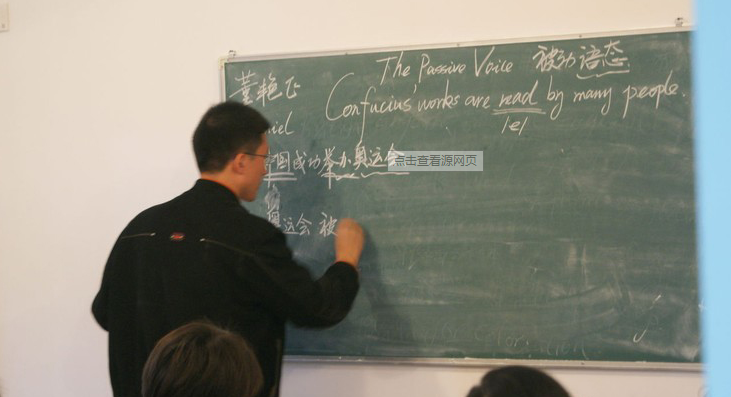 The Passive Voice 被动语态
董艳飞
Confucius' works are read by many people.
/e/
国成功举办奥运会
点击查看源网页
奥运会 被